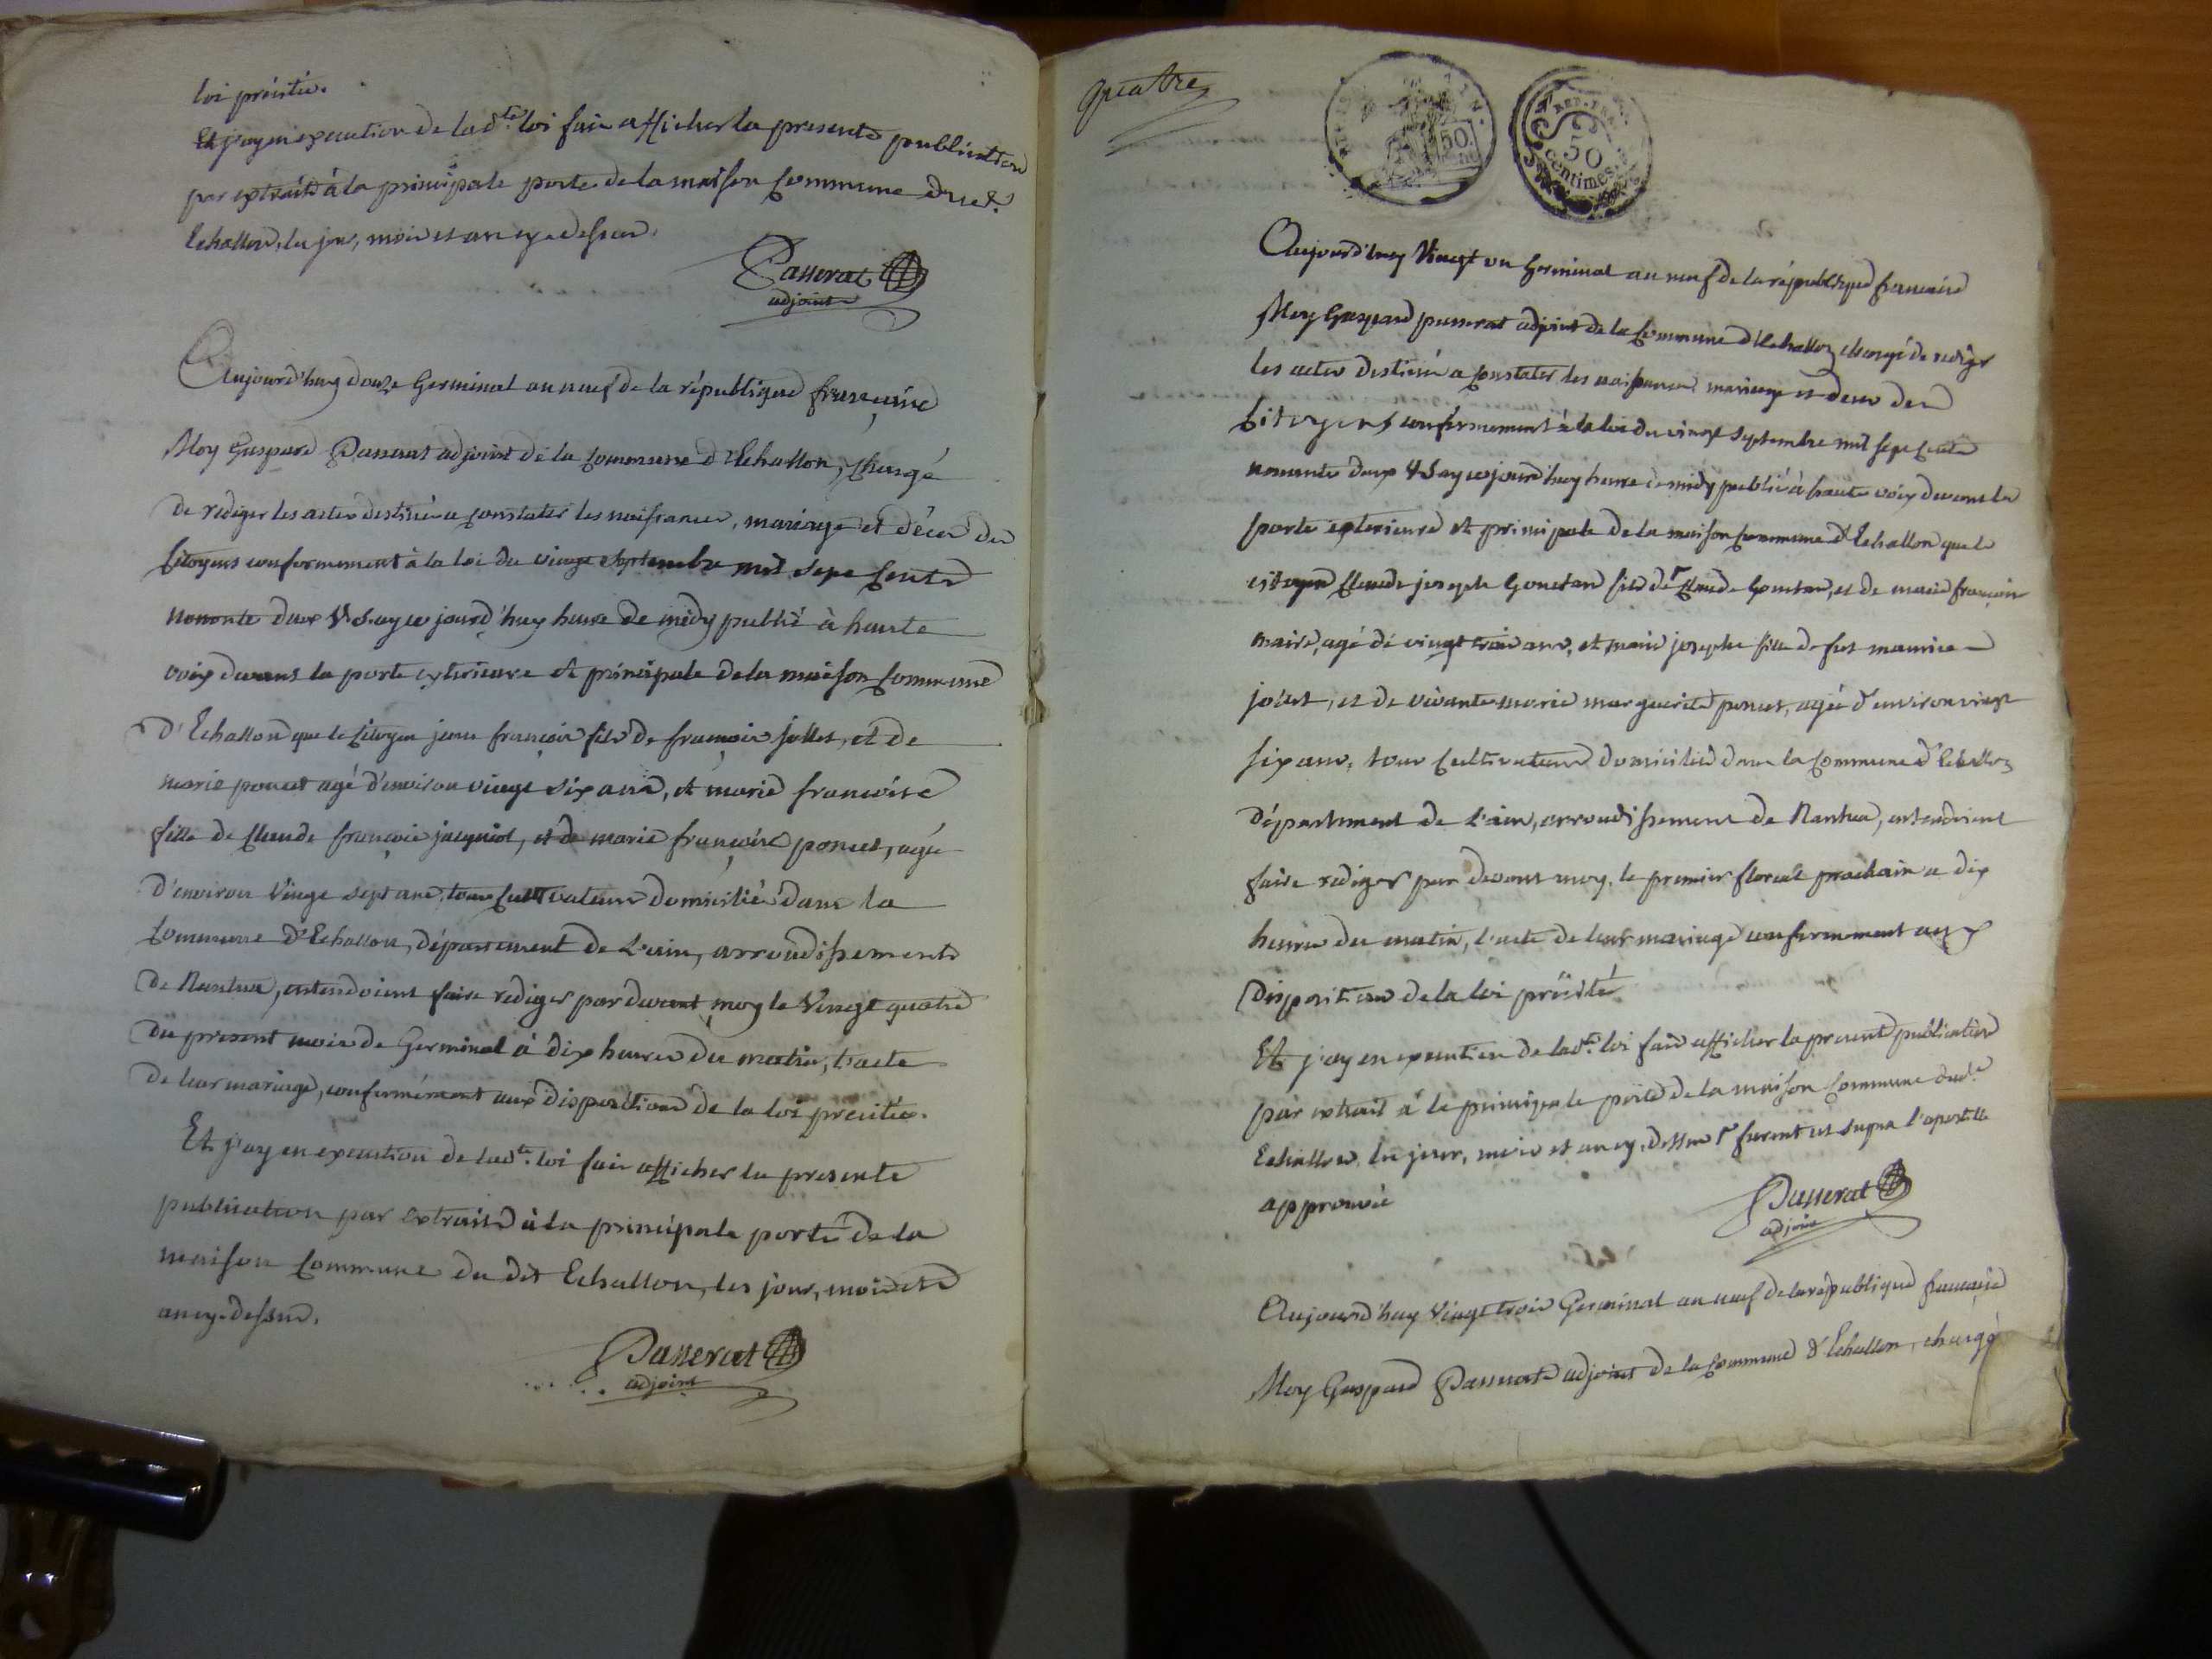 loi précitée.
Et j'ay en execution de lad.te loi fair afficher la presente publication
par extrait à la principale porte de la maison Commune dud.t
Echallon, les jour, mois et an cy-dessus.
Passerat
adjoint
Aujourd'huy douze Germinal an neuf de la république française
Moy Gaspard Passerat adjoint de la Commune d'Echallon, chargé
de rediger les actes destinés a constater les naissances, mariage et décès des
Citoyens conformement à la loi du vingt Septembre mil sept Cents
nonante deux & Say ce jourd'huy heure de midy publié à haute
voix devant la porte exterieure et principale de la maison Commune
d'Echallon que le Citoyen jean françois fils de françois jollet, et de
marie poncet agé d'environ vingt six ans, et marie françoise
fille de Claude françois jacquiot, et de marie françoise poncet, agée
d'environ Vingt sept ans, tous Cultivateurs domiciliés dans la
Commune d'Echallon, département de L'ain, arrondissement
de Nantua, entendoient faire rediger par devant moy le Vingt quatre
du present mois de Germinal à dix heures du matin, l'acte
de leur mariage, conformément aux dispositions de la loi precitée.
Et j'ay en execution de lad.te loi fair afficher la presente
publication par extrait à la principale porte de la
maison Commune du dit Echallon, les jour, mois et
an cy-dessus.
Passerat
adjoint
quatre
50
REP. FRA.
50
centimes
Aujourd'huy Vingt un Germinal an neuf de la république française
Moy Gaspard passerat adjoint de la Commune d'Echallon chargé de rediger
les actes destinés a constater les naissances mariage et deces des
Citoyens conformement à la loi du vingt Septembre mil sept Cents
nonante deux & Say ce jourd'huy heure de midy publié à haute voix devant la
porte exterieure et principale de la maison Commune d'Echallon que le
citoyen Claude joseph Gouetan fils de Claude Gouetan, et de marie françoise
maire, agé de vingt trois ans, et marie josephe fille de fut maurice
jollet, et de vivante marie marguerite poncet, agée d'environ vingt
six ans, tous Cultivateurs domiciliés dans la Commune d'Echallon
département de L'ain, arrondissement de Nantua, entendoient
faire rediger par devant moy, le premier floreal prochain a dix
heures du matin, l'acte de leur mariage conformement aux
disposition de la loi précité
Et j'ay en execution de lad.te loi fair afficher la presente publication
par extrait à la principale porte de la maison Commune dud.t
Echallon, les jour, mois et an cy-dessus furent ut supra l'apostille
approuvée
Passerat
adjoint
Aujourd'huy Vingt trois Germinal an neuf de la république française
Moy Gaspard Passerat adjoint de la Commune d'Echallon, chargé